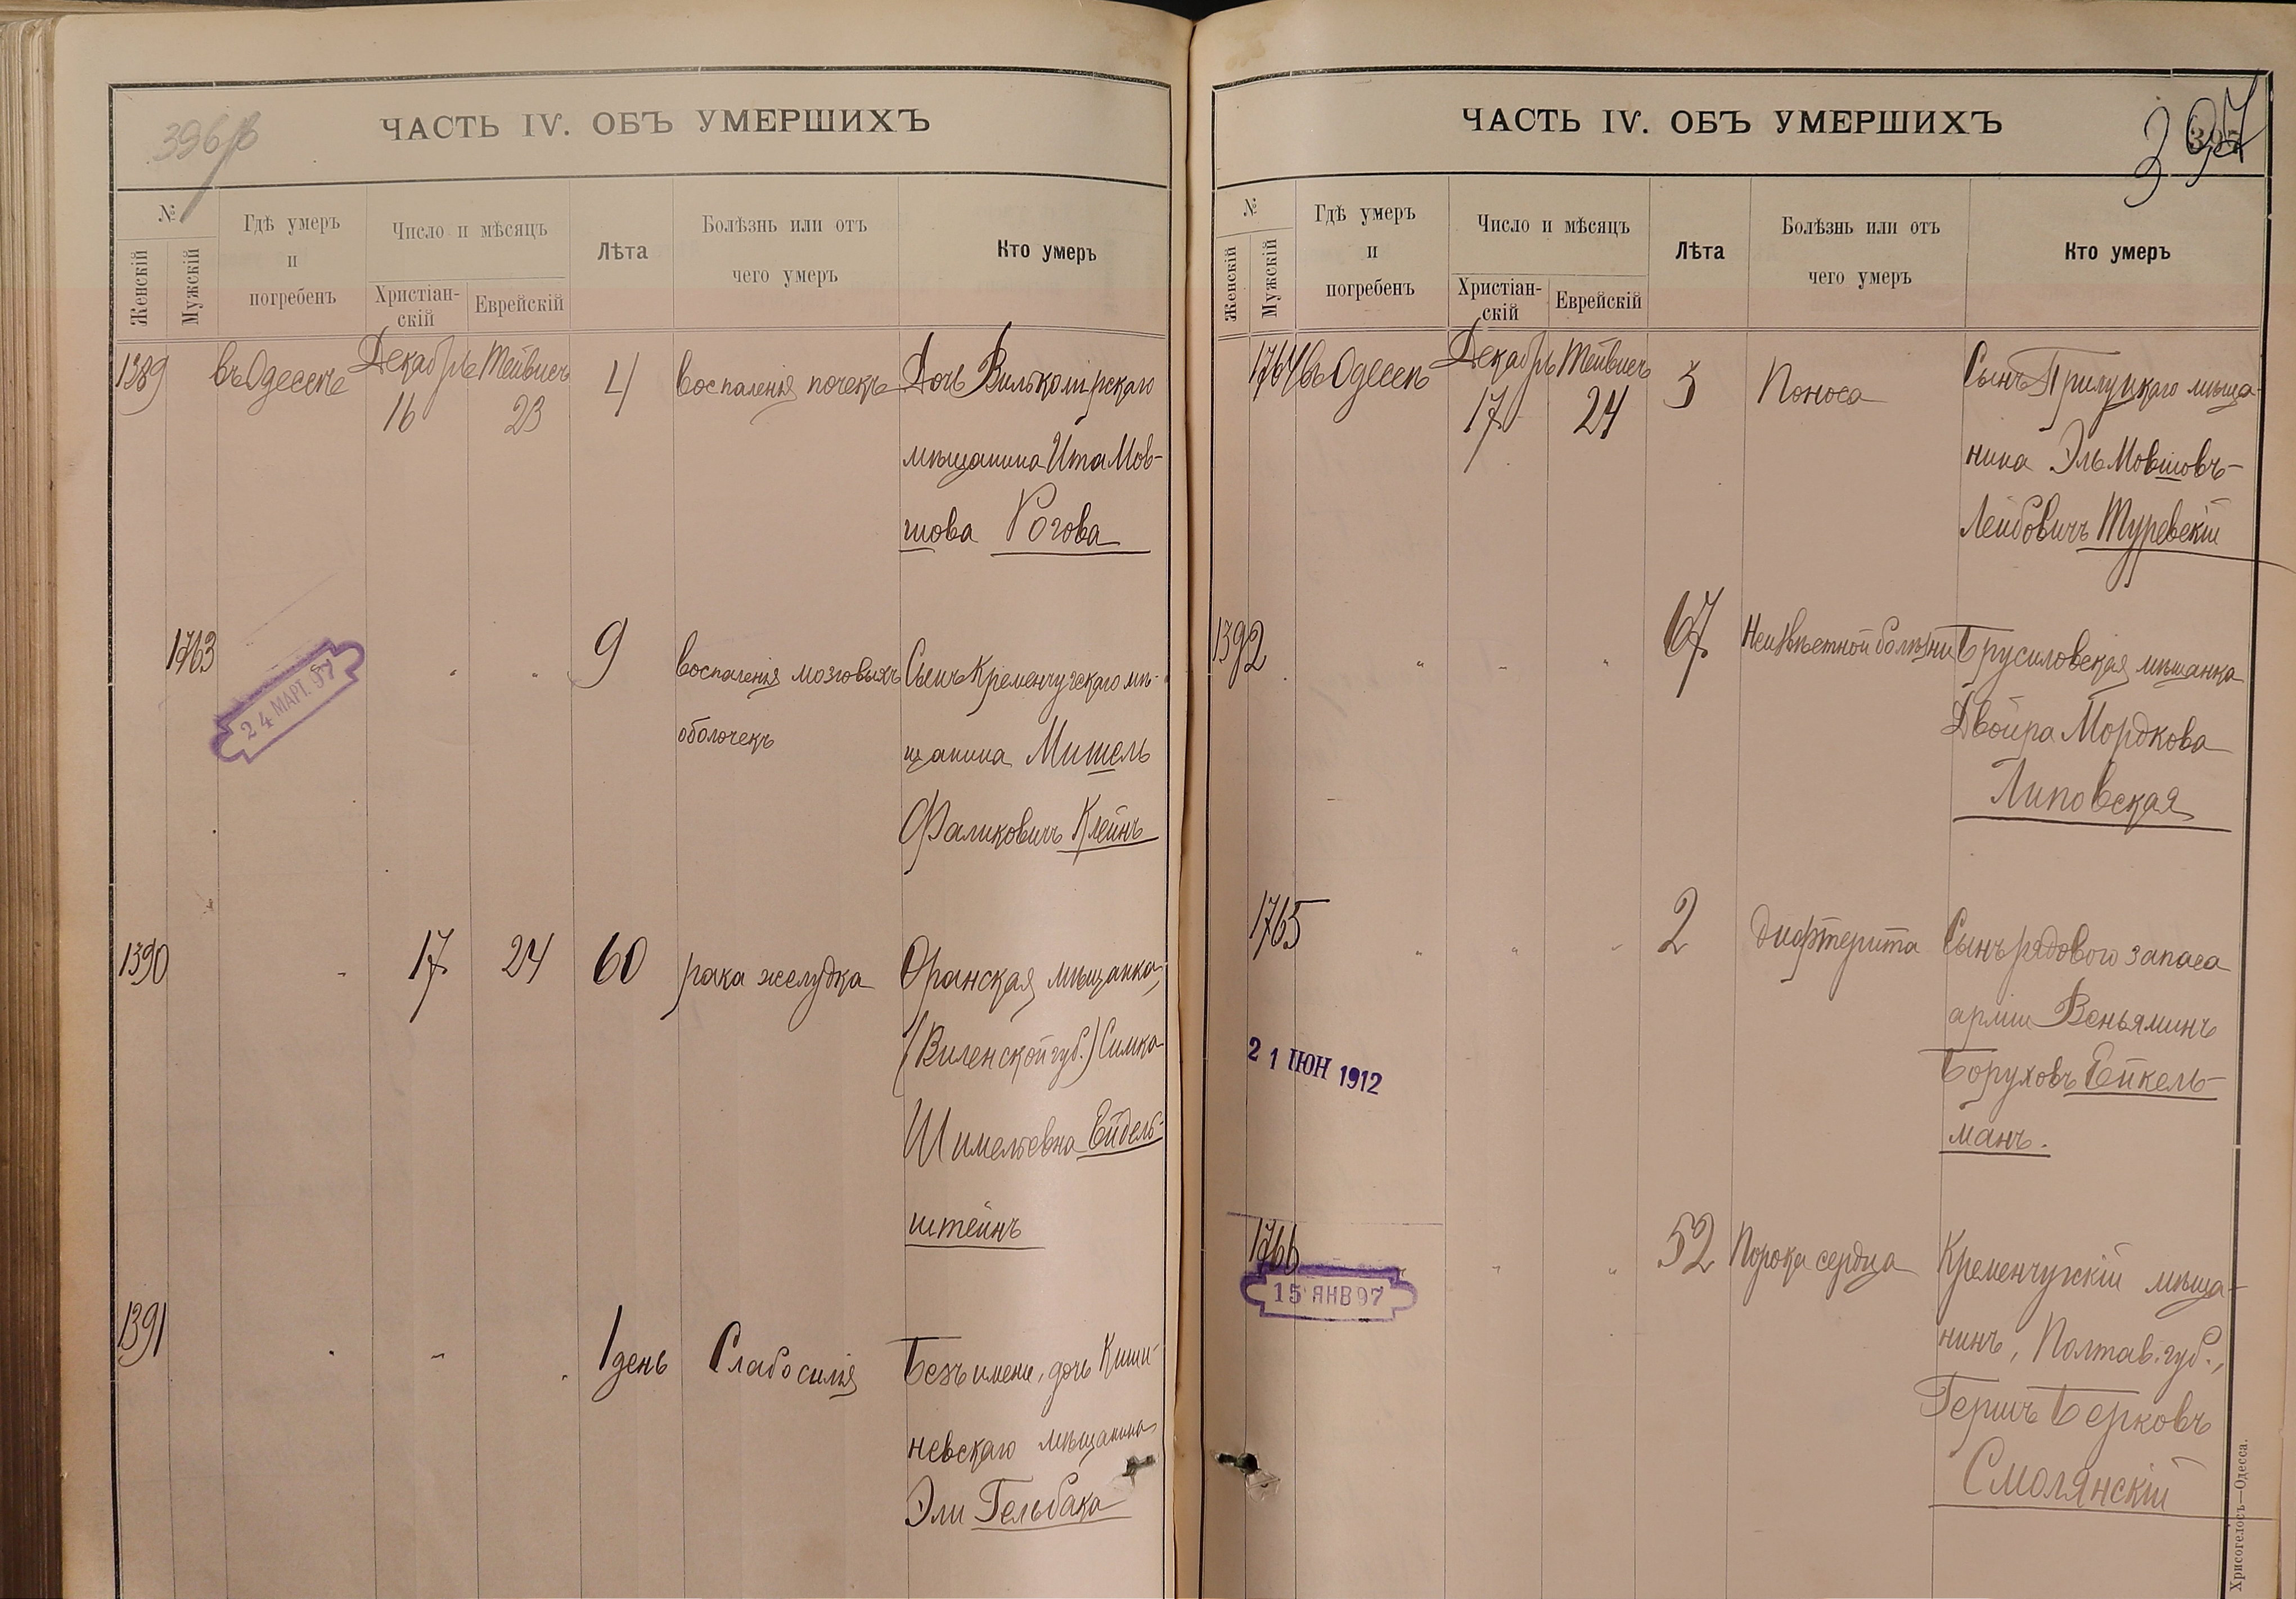 396 об
ЧАСТЬ IV. ОБЪ УМЕРШИХЪ
№
Женскій
Мужскій
Гдѣ умеръ
и
погребенъ
Число и мѣсяцъ
Христіан-
скій
Еврейскій
Лѣта
Болѣзнь или отъ
чего умеръ
Кто умеръ
1389 въ Одессѣ Декабрь Тейвисъ 4 воспаленія почекъ Дочь Вилькомірскаго
16 23
мѣщанина Ита Мов-
шова Рогова
1763 " " 9 воспаленія мозговыхъ Сынъ Кременчугскаго мѣ-
оболочекъ
щанина Мишель
Фаликовичъ Клейнъ
24 МАРТ. 97
1390 " 17 24 60 рака желудка Оранская мѣщанка,
(Виленской губ.) Симка
Шимелевна Ейдель-
штейнъ
1391 " " " 1 день Слабосилія Безъ имени, дочь Киши-
невскаго мѣщанина
Эли Гельбака
ЧАСТЬ IV. ОБЪ УМЕРШИХЪ
397
№
Женскій
Мужскій
Гдѣ умеръ
и
погребенъ
Число и мѣсяцъ
Христіан-
скій
Еврейскій
Лѣта
Болѣзнь или отъ
чего умеръ
Кто умеръ
1764 въ Одессѣ Декабрь Тейвисъ 3 Поноса Сынъ Прилуцкаго мѣща-
17 24
нина Эль Мовшовъ-
Лейбовичъ Туревскій
1392 " " " 67 Неизвѣстной болѣзни Брусиловская мѣщанка
Двойра Мордкова
Липовская
1765 " " " 2 Дифтерита Сынъ рядового запаса
арміи Веньяминъ
Боруховъ Ейкель-
манъ.
21 ІЮН 1912
1766 " " " 52 Порока сердца Кременчугскій мѣща-
нинъ, Полтав. губ.,
Гершъ Берковъ
Смолянскій
15 ЯНВ 97
Хрисогелосъ—Одесса.